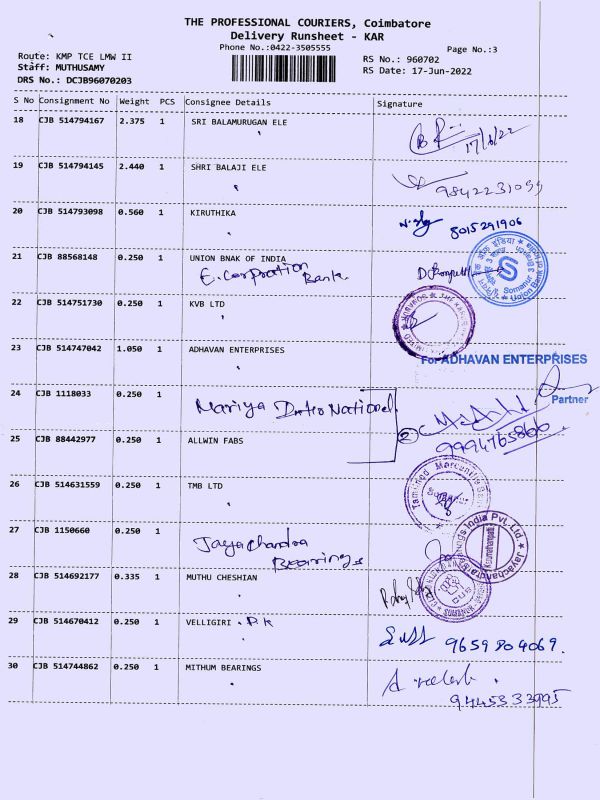 THE PROFESSIONAL COURIERS, Coimbatore
Delivery Runsheet - KAR
Phone No.:0422-3505555
Page No.:3
Route: KMP TCE LMW II
RS No.: 960702
Staff: MUTHUSAMY
RS Date: 17-Jun-2022
DRS No.: DCJB96070203
S No Consignment No Weight PCS Consignee Details Signature
18 CJB 514794167 2.375 1 SRI BALAMURUGAN ELE
17/6/22
19 CJB 514794145 2.440 1 SHRI BALAJI ELE
20 CJB 514793098 0.560 1 KIRUTHIKA
8015291906
21 CJB 88568148 0.250 1 UNION BNAK OF INDIA
E. Corporation Bank
22 CJB 514751730 0.250 1 KVB LTD
23 CJB 514747042 1.050 1 ADHAVAN ENTERPRISES
For ADHAVAN ENTERPRISES
Partner
24 CJB 1118033 0.250 1
Mariya National
25 CJB 88442977 0.250 1 ALLWIN FABS
2
9994765866
26 CJB 514631559 0.250 1 TMB LTD
27 CJB 1150660 0.250 1
Jayachandra
Bearings
28 CJB 514692177 0.335 1 MUTHU CHESHIAN
29 CJB 514670412 0.250 1 VELLIGIRI . P.K
9659804069.
30 CJB 514744862 0.250 1 MITHUM BEARINGS
9445333995